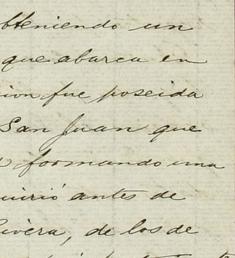 obteniendo un
que abarca en
ion fue poseida
San Juan que
formando una
uirió antes de
ivera, de los de